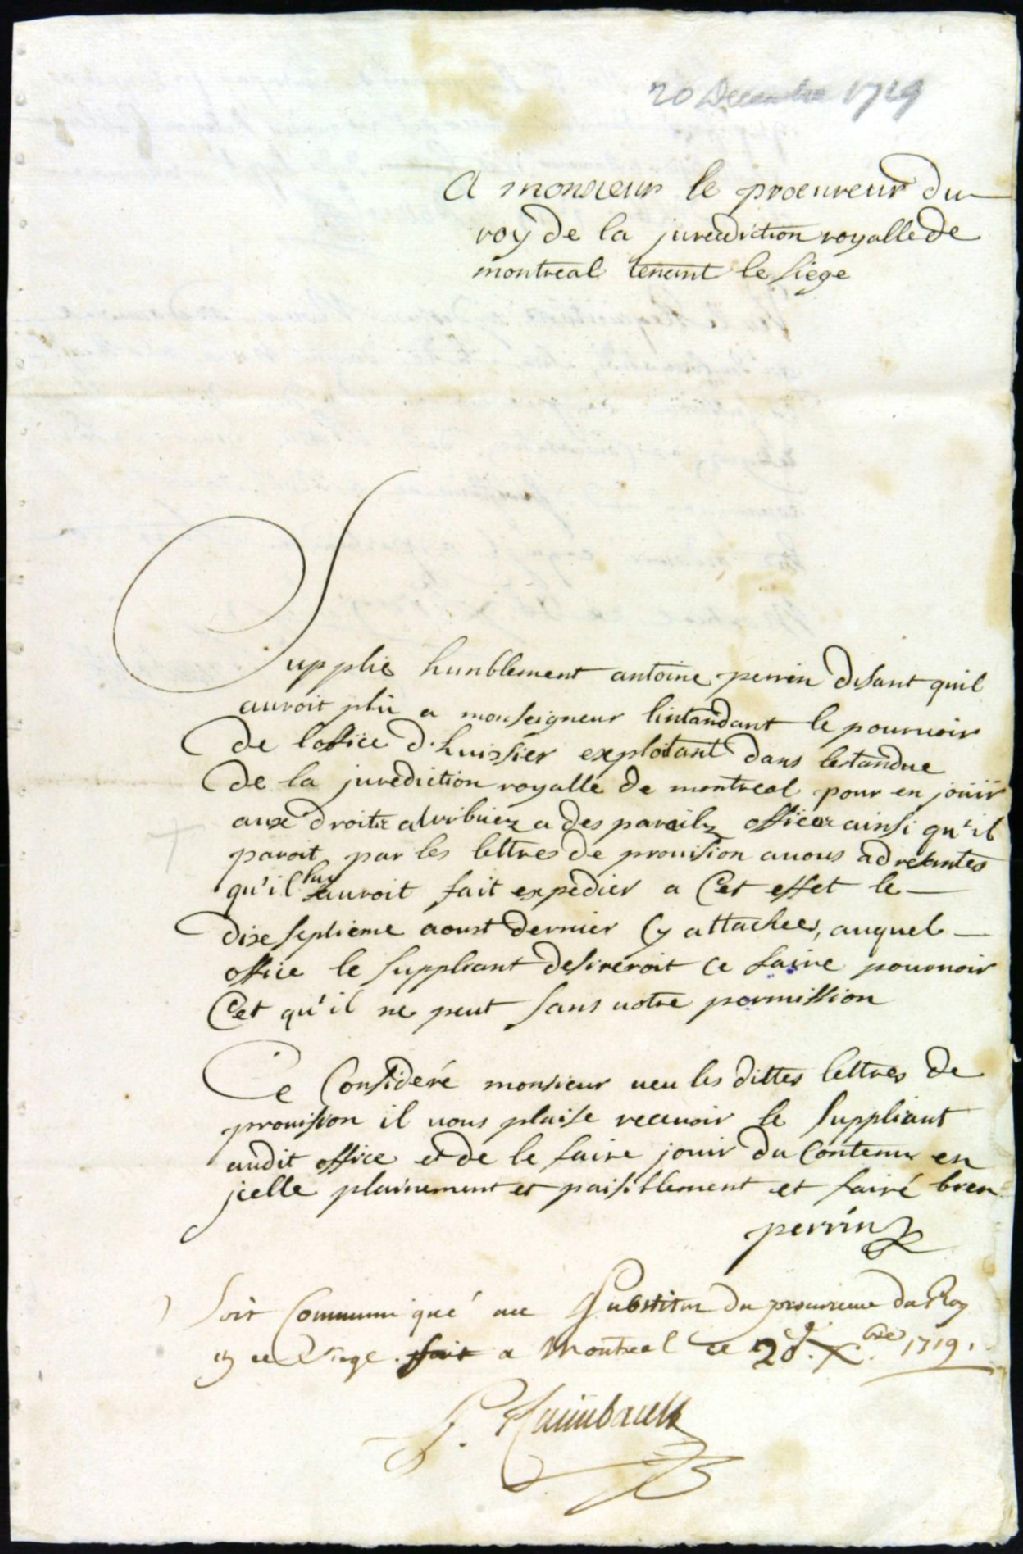 20 Decembre 1719
A monsieur le procureur du
roy de la juridiction royalle de
montreal tenant le siege
Supplie humblement antoine perrin disant quil
auroit plu a monseigneur lintandant le pourvoir
de loffice d'huissier explotant dans lestandue
de la jurediction royalle de montreal pour en jouir
aux droits attribuez a des pareilz offices ainsi qu'il
paroit par les lettres de provision a vous adresantes
qu'il luy auroit fait expedier a Cet effet le
dixseptieme aoust dernier Cy attachees, auquel
office le suppliant desireroit ce faire pourvoir
Cet qu'il ne peut sans votre permission
Ce Consideré monsieur veu les dittes lettres de
provision il vous plaise recevoir le suppliant
audit office et de le faire jouir du Contenu en
jcelle plainement et paisiblement et fairé bien
perrin
Soit Communiqué au Substitut du procureur du Roy
en ce siege. fait a Montreal ce 20e. Xbre 1719.
P. Raimbault